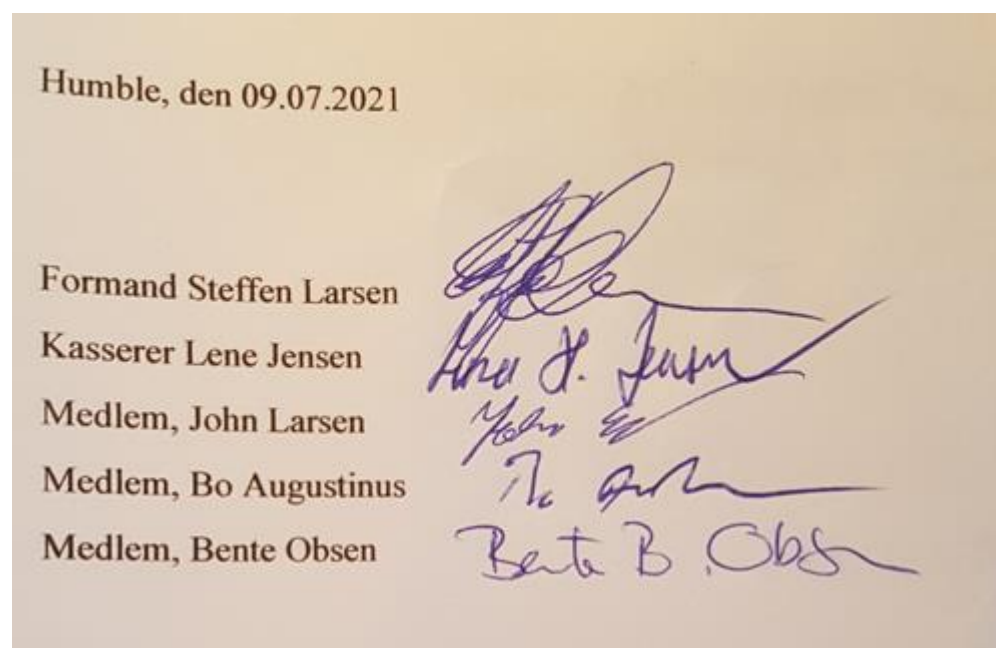 Humble, den 09.07.2021
Formand Steffen Larsen
Kasserer Lene Jensen H. Jensen
Medlem, John Larsen John
Medlem, Bo Augustinus
Medlem, Bente Obsen Bente B. Obsen